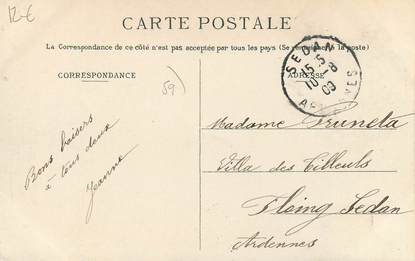 12-€
CARTE POSTALE
La Correspondance de ce côté n'est pas acceptée par tous les pays (Se renseigner à la poste)
CORRESPONDANCE
ADRESSE
59
SEDAN
ARDENNES
Bons baisers
à tous deux
Jeanne
Madame Pruneta
Villa des Tilleuls
Floing Sedan
Ardennes